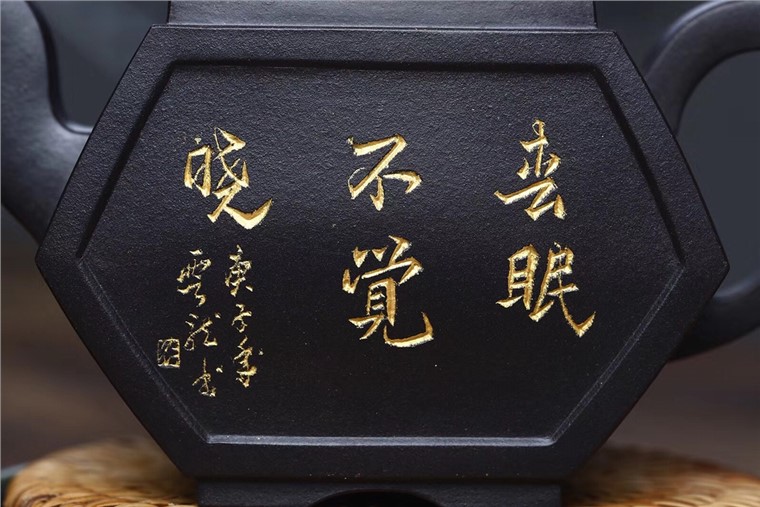 春眠
不覺
晓
庚子年
雲龍书